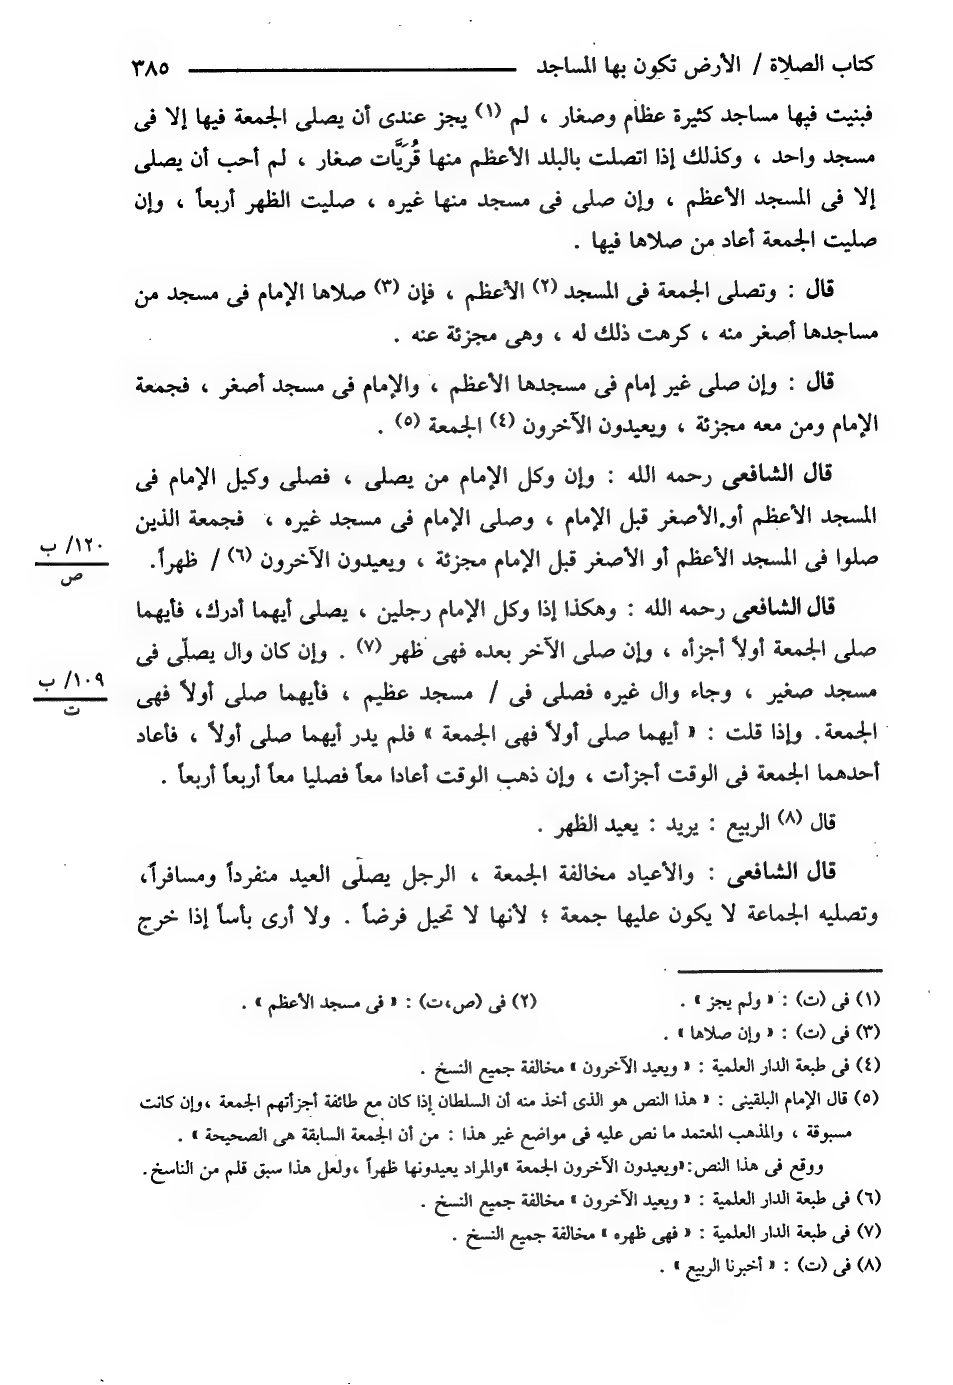 كتاب الصلاة / الأرض تكون بها المساجد ٣٨٥
فبنيت فيها مساجد كثيرة عظام وصغار ، لم (١) يجز عندى أن يصلى الجمعة فيها إلا فى
مسجد واحد ، وكذلك إذا اتصلت بالبلد الأعظم منها قُريَّات صغار ، لم أحب أن يصلى
إلا فى المسجد الأعظم ، وإن صلى فى مسجد منها غيره ، صليت الظهر أربعاً ، وإن
صليت الجمعة أعاد من صلاها فيها .
قال : وتصلى الجمعة فى المسجد (٢) الأعظم ، فإن (٣) صلاها الإمام فى مسجد من
مساجدها أصغر منه ، كرهت ذلك له ، وهى مجزئة عنه .
قال : وإن صلى غير إمام فى مسجدها الأعظم ، والإمام فى مسجد أصغر ، فجمعة
الإمام ومن معه مجزئة ، ويعيدون الآخرون (٤) الجمعة (٥) .
قال الشافعى رحمه الله : وإن وكل الإمام من يصلى ، فصلى وكيل الإمام فى
المسجد الأعظم أو الأصغر قبل الإمام ، وصلى الإمام فى مسجد غيره ، فجمعة الذين
صلوا فى المسجد الأعظم أو الأصغر قبل الإمام مجزئة ، ويعيدون الآخرون (٦) / ظهراً.
١٢٠/ ب
ص
قال الشافعى رحمه الله : وهكذا إذا وكل الإمام رجلين ، يصلى أيهما أدرك، فأيهما
صلى الجمعة أولاً أجزأه ، وإن صلى الآخر بعده فهى ظهر (٧) . وإن كان وال يصلّى فى
مسجد صغير ، وجاء وال غيره فصلى فى / مسجد عظيم ، فأيهما صلى أولاً فهى
١٠٩/ ب
ت
الجمعة. وإذا قلت : « أيهما صلى أولاً فهى الجمعة » فلم يدر أيهما صلى أولاً ، فأعاد
أحدهما الجمعة فى الوقت أجزأت ، وإن ذهب الوقت أعادا معاً فصليا معاً أربعاً أربعاً .
قال (٨) الربيع : يريد : يعيد الظهر .
قال الشافعى : والأعياد مخالفة الجمعة ، الرجل يصلّى العيد منفرداً ومسافراً،
وتصليه الجماعة لا يكون عليها جمعة ؛ لأنها لا تحيل فرضاً . ولا أرى بأساً إذا خرج
(١) فى (ت) : « ولم يجز » . (٢) فى (ص،ت) : « فى مسجد الأعظم » .
(٣) فى (ت) : « وإن صلاها » .
(٤) فى طبعة الدار العلمية : « ويعيد الآخرون » مخالفة جميع النسخ .
(٥) قال الإمام البلقينى : « هذا النص هو الذى أخذ منه أن السلطان إذا كان مع طائفة أجزأتهم الجمعة ،وإن كانت
مسبوقة ، والمذهب المعتمد ما نص عليه فى مواضع غير هذا : من أن الجمعة السابقة هى الصحيحة » .
ووقع فى هذا النص:«ويعيدون الآخرون الجمعة »والمراد يعيدونها ظهراً ،ولعل هذا سبق قلم من الناسخ.
(٦) فى طبعة الدار العلمية : « ويعيد الآخرون » مخالفة جميع النسخ .
(٧) فى طبعة الدار العلمية : « فهى ظهره » مخالفة جميع النسخ .
(٨) فى (ت) : « أخبرنا الربيع » .